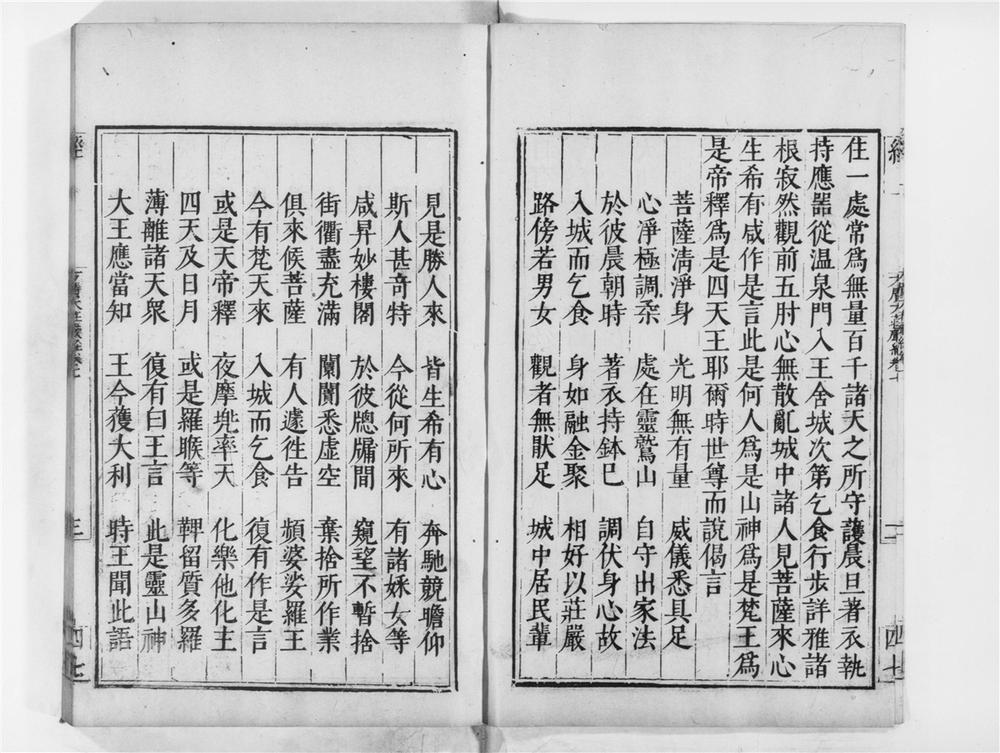 住一處常為無量百千諸天之所守護晨旦著衣執
持應器從温泉門入王舍城次第乞食行步詳雅諸
根寂然觀前五肘心無散亂城中諸人見菩薩來心
生希有咸作是言此是何人為是山神為是梵王為
是帝釋為是四天王耶爾時世尊而說偈言
菩薩清淨身　光明無有量　威儀悉具足
心淨極調柔　處在靈鷲山　自守出家法
於彼晨朝時　著衣持鉢已　調伏身心故
入城而乞食　身如融金聚　相好以莊嚴
路傍若男女　觀者無猒足　城中居民輩
見是勝人來　皆生希有心　奔馳競瞻仰
斯人甚竒特　今從何所來　有諸婇女等
咸昇妙樓閣　於彼䆫牖間　窺望不暫捨
街衢盡充滿　闤闠悉虛空　棄捨所作業
俱來候菩薩　有人遽徃告　頻婆娑羅王
今有梵天來　入城而乞食　復有作是言
或是天帝釋　夜摩兠率天　化樂他化主
四天及日月　或是羅睺等　鞞留質多羅
薄離諸天衆　復有白王言　此是靈山神
大王應當知　王今獲大利　時王聞此語